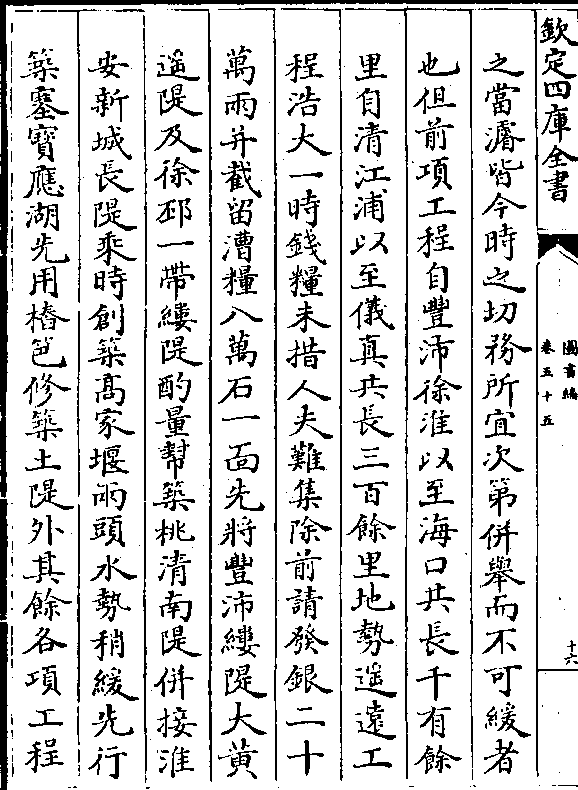 欽定四庫全書
圖書編
卷五十五
十六
之當濬皆今時之切務所宜次第併舉而不可緩者
也但前項工程自豐沛徐淮以至海口共長千有餘
里自清江浦以至儀真共長三百餘里地勢遥遠工
程浩大一時錢糧未措人夫難集除前請發銀二十
萬兩并截留漕糧八萬石一面先將豐沛縷隄大黄
遥隄及徐邳一帶縷隄酌量幇築桃清南隄併接淮
安新城長隄乘時創築髙家堰兩頭水勢稍緩先行
築塞寶應湖先用樁笆修築土隄外其餘各項工程